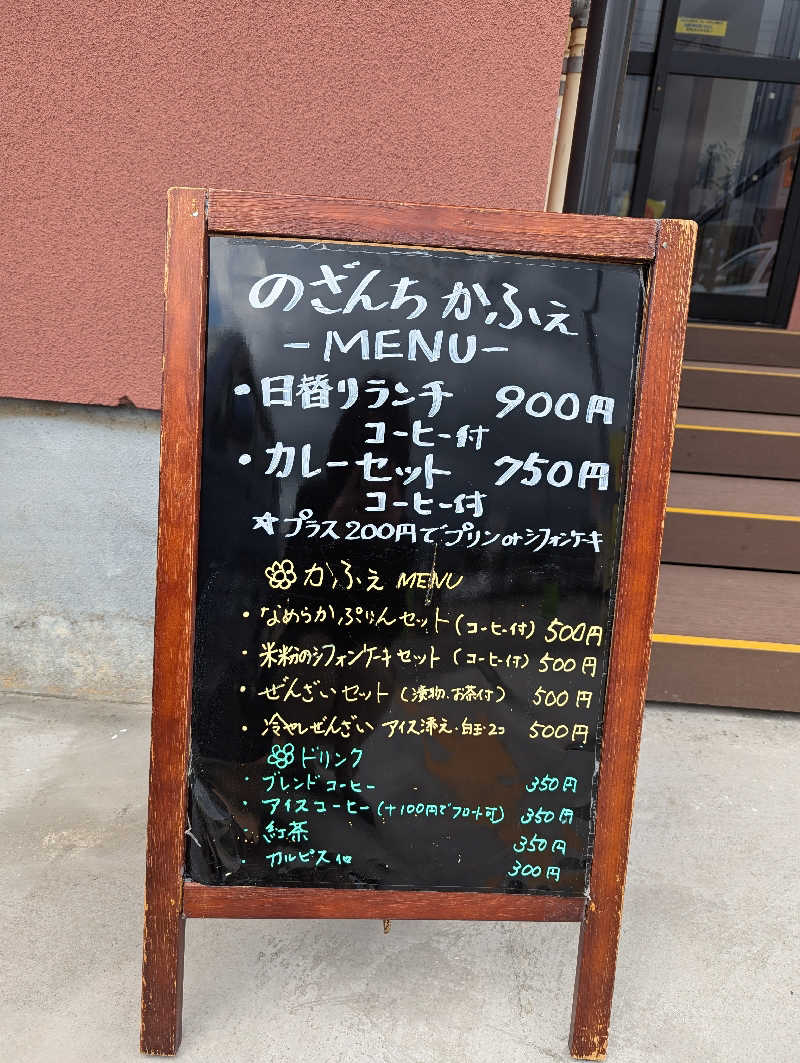 のざんち かふぇ
-MENU-
・日替りランチ 900円
コーヒー付
・カレーセット 750円
コーヒー付
☆プラス200円でプリンorシフォンケーキ
かふぇ MENU
・なめらかぷりんセット(コーヒー付) 500円
・米粉のシフォンケーキセット(コーヒー付) 500円
・ぜんざいセット(漬物、お茶付) 500円
・冷やしぜんざい アイス添え・白玉・2コ 500円
ドリンク
・ブレンドコーヒー 350円
・アイスコーヒー(+100円でフロート可) 350円
・紅茶 350円
・カルピス他 300円